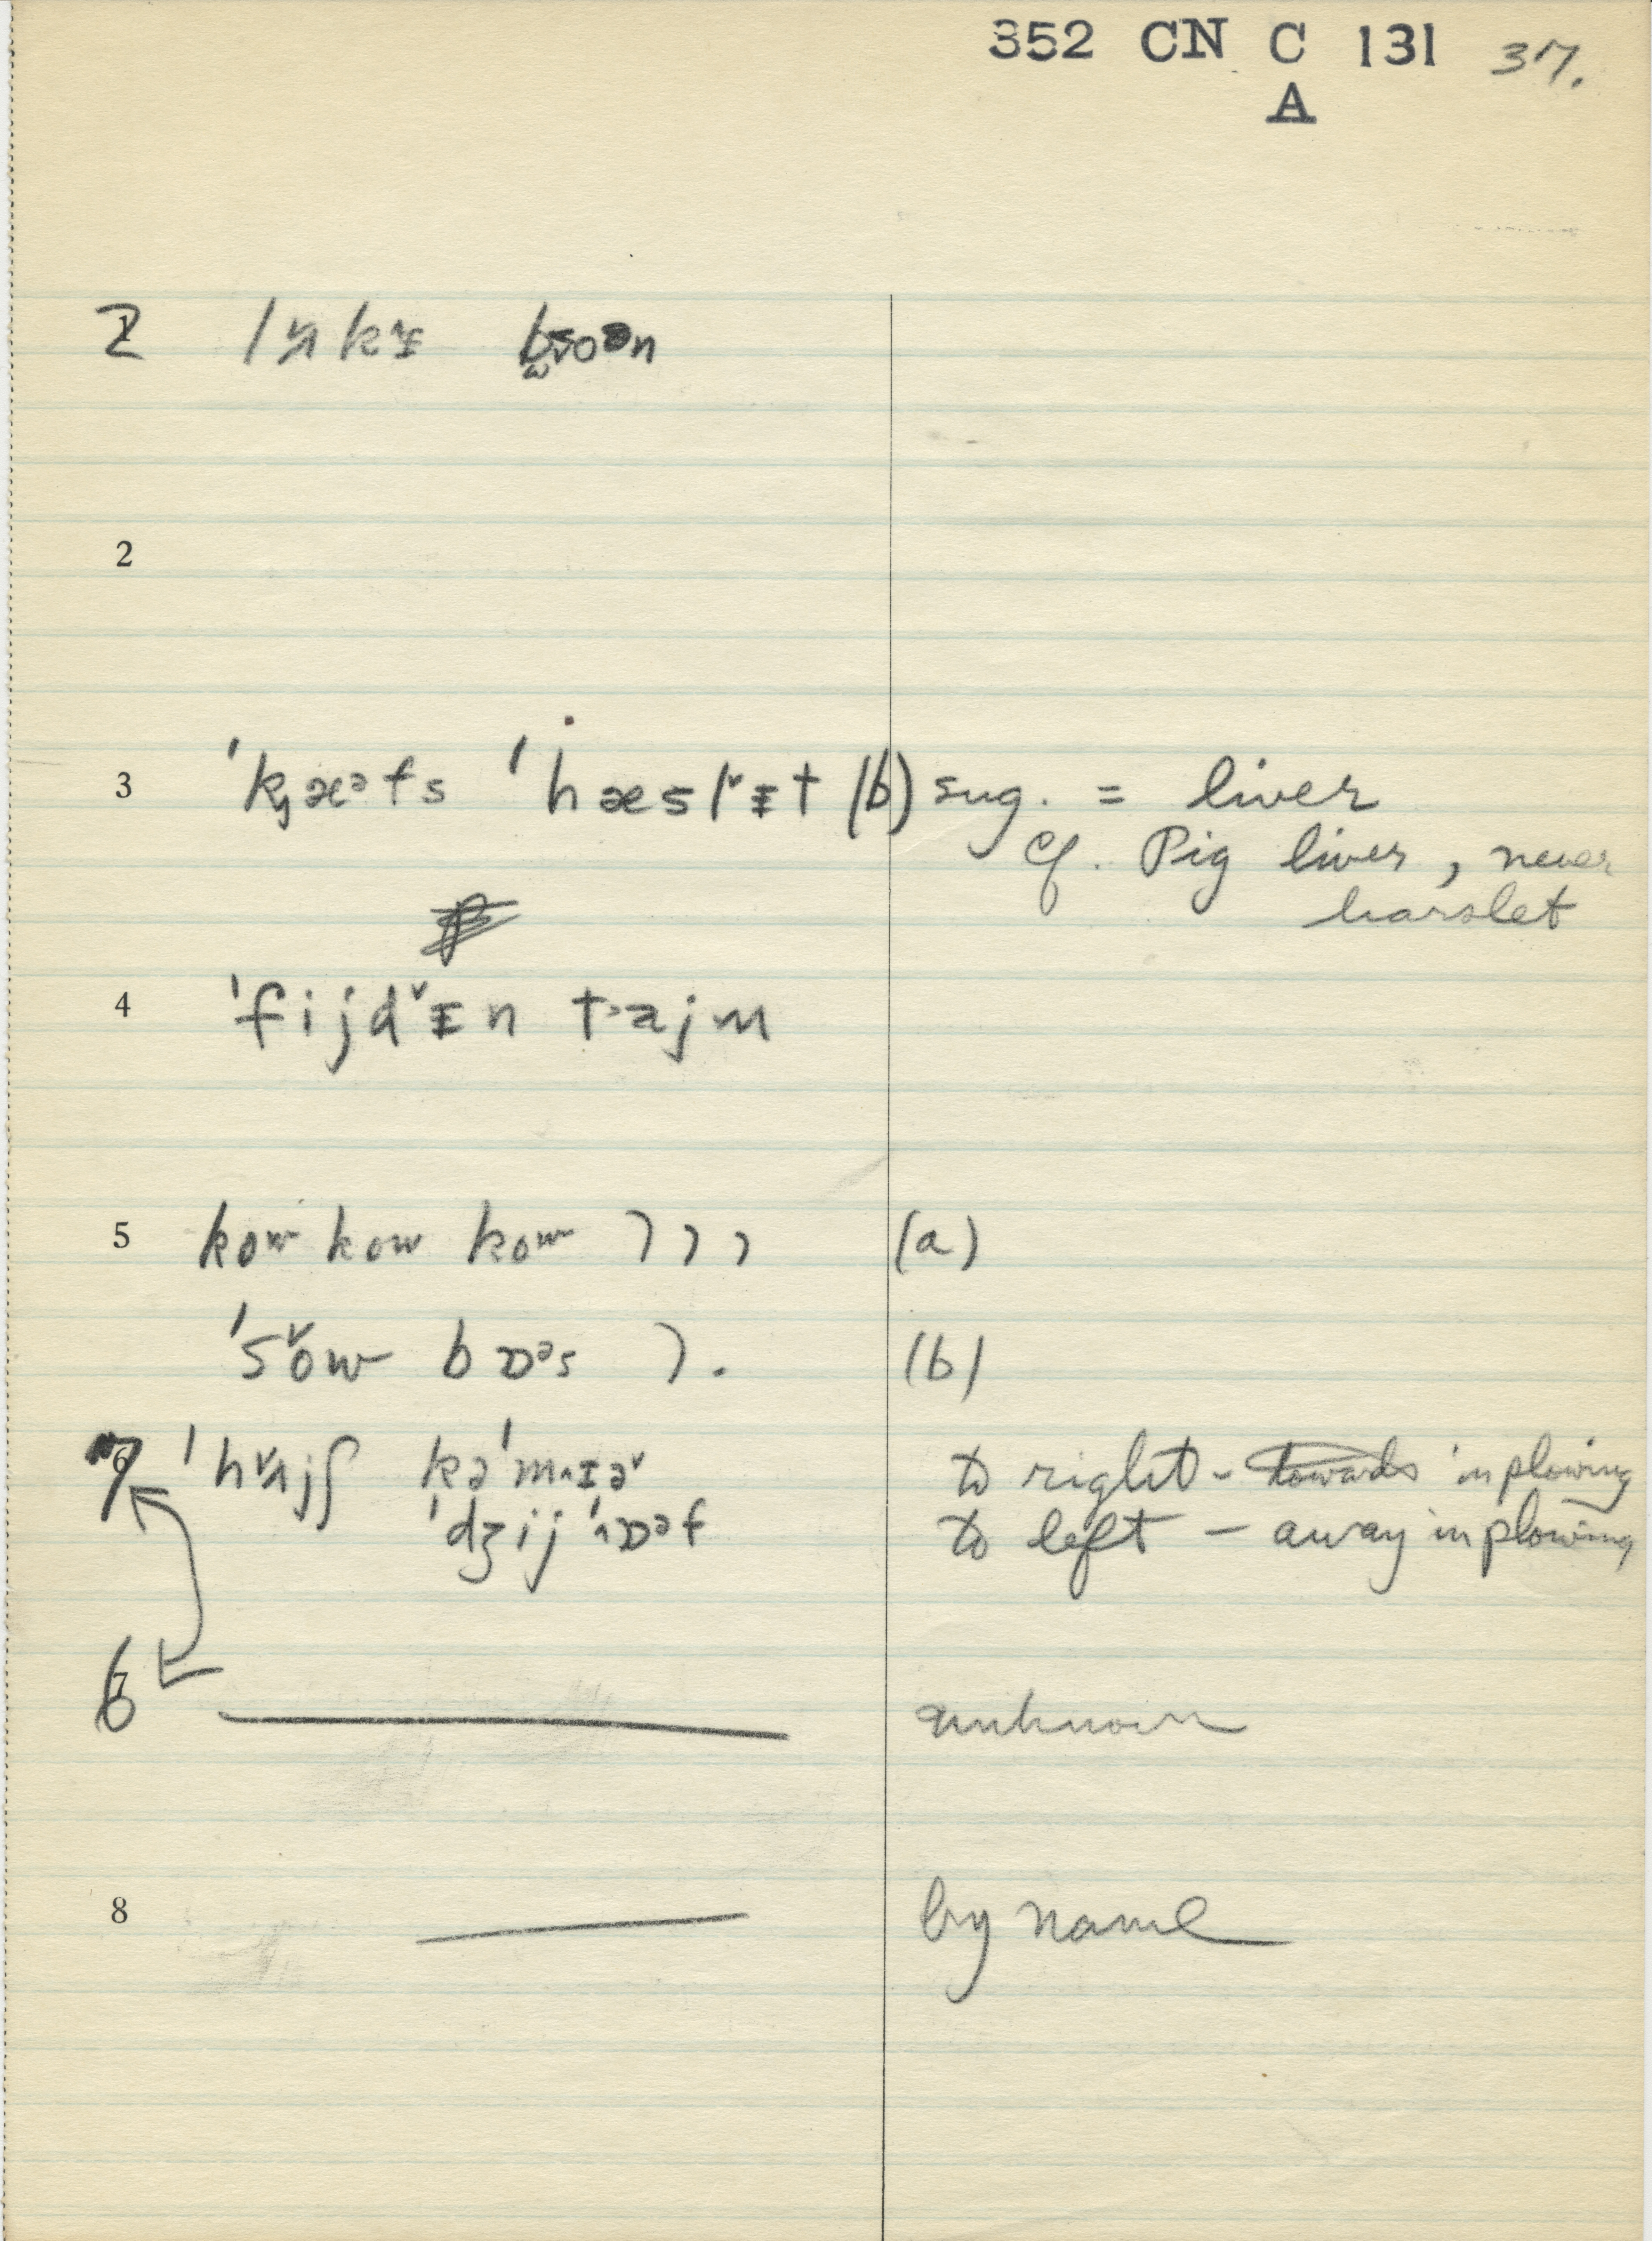 352 CN C 131 37.
A
2
2
3 ˈkjæᵊfs ˈhæslˇᵻt (b) sug. = liver
cf. Pig liver, never
harslet
4 ˈfijdˇᵻn tajm
5 kow kow kow ) ) ) (a)
ˈsˇow bɒᵊs ). (b)
7 ˈhˇʌjʃ to right - towards in plowing
to left - away in plowing
6 unknown
8 by name